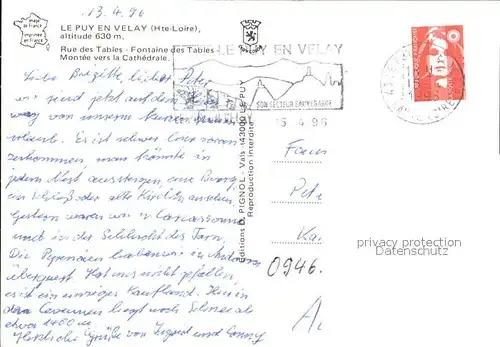 13.4.96
LE PUY EN VELAY (Hte-Loire),
altitude 630 m,
Rue des Tables - Fontaine des Tables
Montée vers la Cathédrale.
image de France
imprimée en France
LE PUY EN VELAY
SON SECTEUR SAUVEGARDE
15 4 96
Liebe Brigitte, lieber Peter
wir sind jetzt auf dem Heim
weg von unserem kurzen
urlaub. Es ist schwer
vorwärts zukommen, man könnte in
jedem Nest aussteigen, eine Burg,
ein Schloß oder alte Kirche ansehen.
Gestern waren wir in Carcassonne
und in der Schlucht des Tarn.
Die Pyrenäen haben wir in Andorra
überquert. Hat uns nicht gefallen
es ist ein einziges Kaufland. Hier in
den Cevennen liegt noch Schnee ab
etwa 1400 m
Herzliche Grüße von Sigrid und Conny
Editions D. PIGNOL - Vals - 43000 LE PUY
Reproduction interdite
Pet
Ka
0946.
privacy protection
Datenschutz